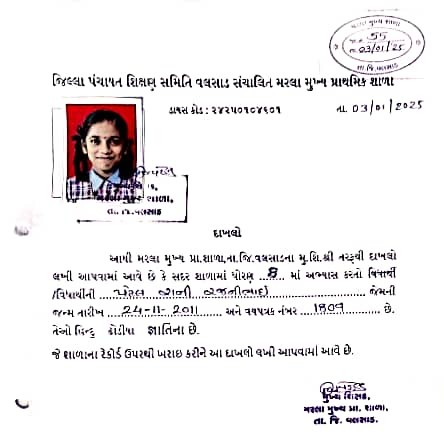 મરલા મુખ્ય શાળા
જા.નં. 55
તા. 03/01/25
તા.જિ.વલસાડ
જિલ્લા પંચાયત શિક્ષણ સમિતિ વલસાડ સંચાલિત મરલા મુખ્ય પ્રાથમિક શાળા
ડાયસ કોડ : ૨૪૨૫૦૧૦૪૬૦૧ તા. 03/01/2025
શાળા,
તા. જિ. વલસાડ
દાખલો
આથી મરલા મુખ્ય પ્રા.શાળા,તા.જિ.વલસાડના મુ.શિ.શ્રી તરફથી દાખલો
લખી આપવામાં આવે છે કે સદર શાળામાં ધોરણ 8 માં અભ્યાસ કરતો વિદ્યાર્થી
/વિદ્યાર્થીની પટેલ જેમની
જન્મ તારીખ 24-11-2011 અને વયપત્રક નંબર 1809 છે.
તેઓ હિન્દુ ધોડીયા જ્ઞાતિના છે.
જે શાળાના રેકોર્ડ ઉપરથી ખરાઇ કરીને આ દાખલો લખી આપવામાં આવે છે.
મુખ્ય શિક્ષક,
મરલા મુખ્ય પ્રા. શાળા,
તા. જિ. વલસાડ.